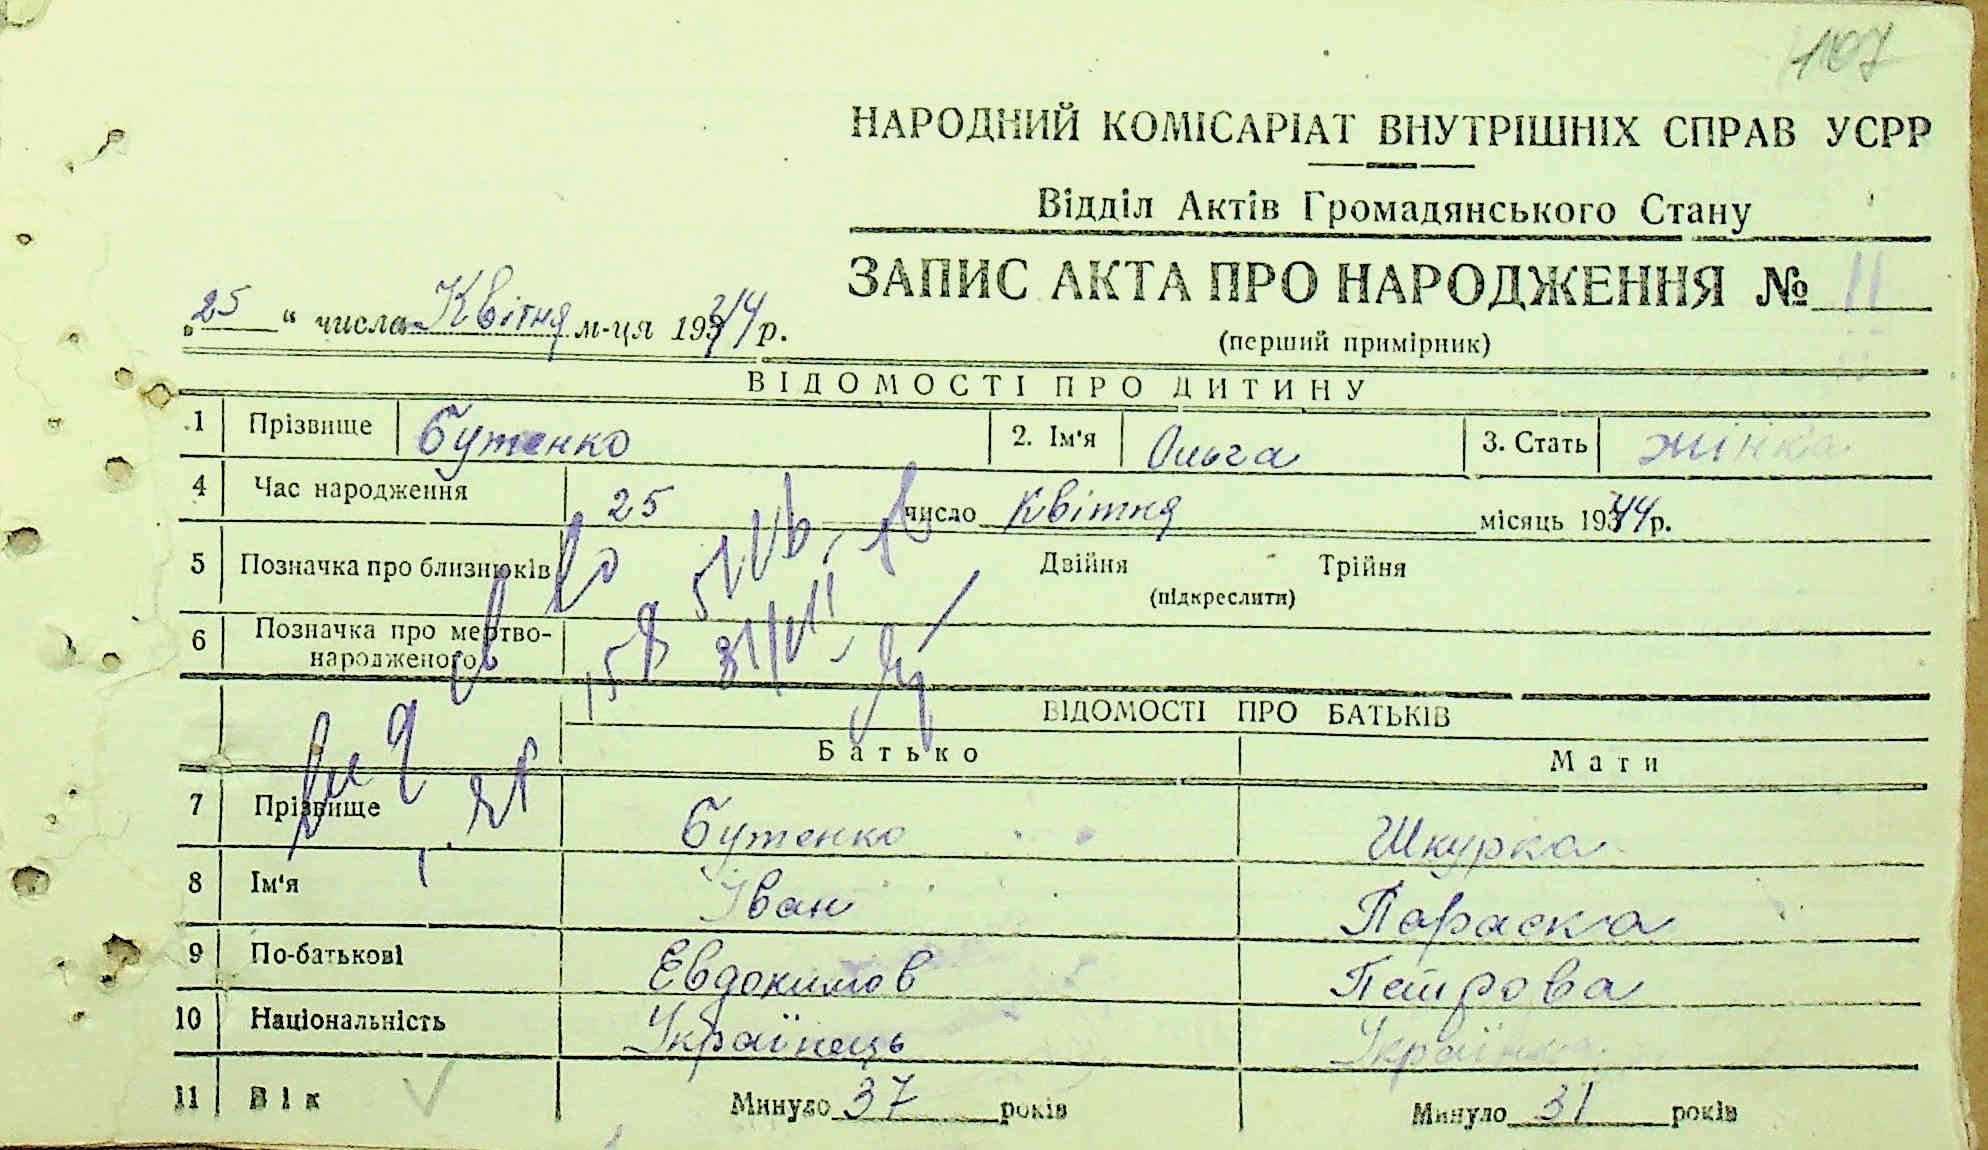 107
НАРОДНИЙ КОМІСАРІАТ ВНУТРІШНІХ СПРАВ УСРР
Відділ Актів Громадянського Стану
ЗАПИС АКТА ПРО НАРОДЖЕННЯ № 11
„25“ числа Квітня м-ця 1944 р.
(перший примірник)
ВІДОМОСТІ ПРО ДИТИНУ
1 Прізвище Бутенко 2. Ім'я Ольга 3. Стать жінка
4 Час народження 25 число квітня місяць 1944 р.
5 Позначка про близнюків Двійня Трійня
(підкреслити)
6 Позначка про мертво-
народженого
ВІДОМОСТІ ПРО БАТЬКІВ
Батько Мати
7 Прізвище Бутенко Шкурка
8 Ім'я Іван Параска
9 По-батькові Евдокимов Петрова
10 Національність Українець Українка
11 Вік Минуло 37 років Минуло 31 років